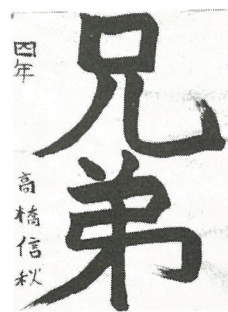 兄弟
四年
高橋信秋